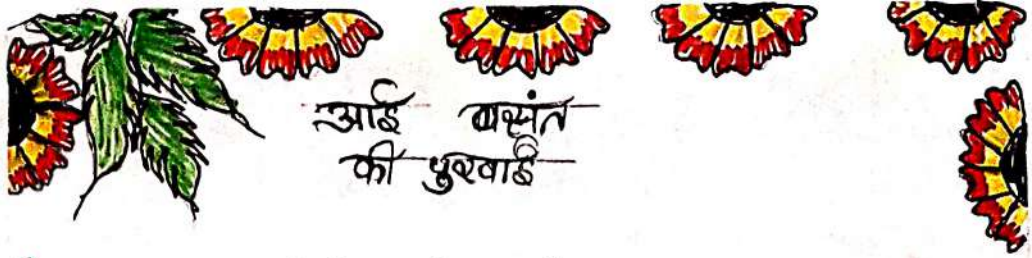 आई बसंत
की पुरवाई